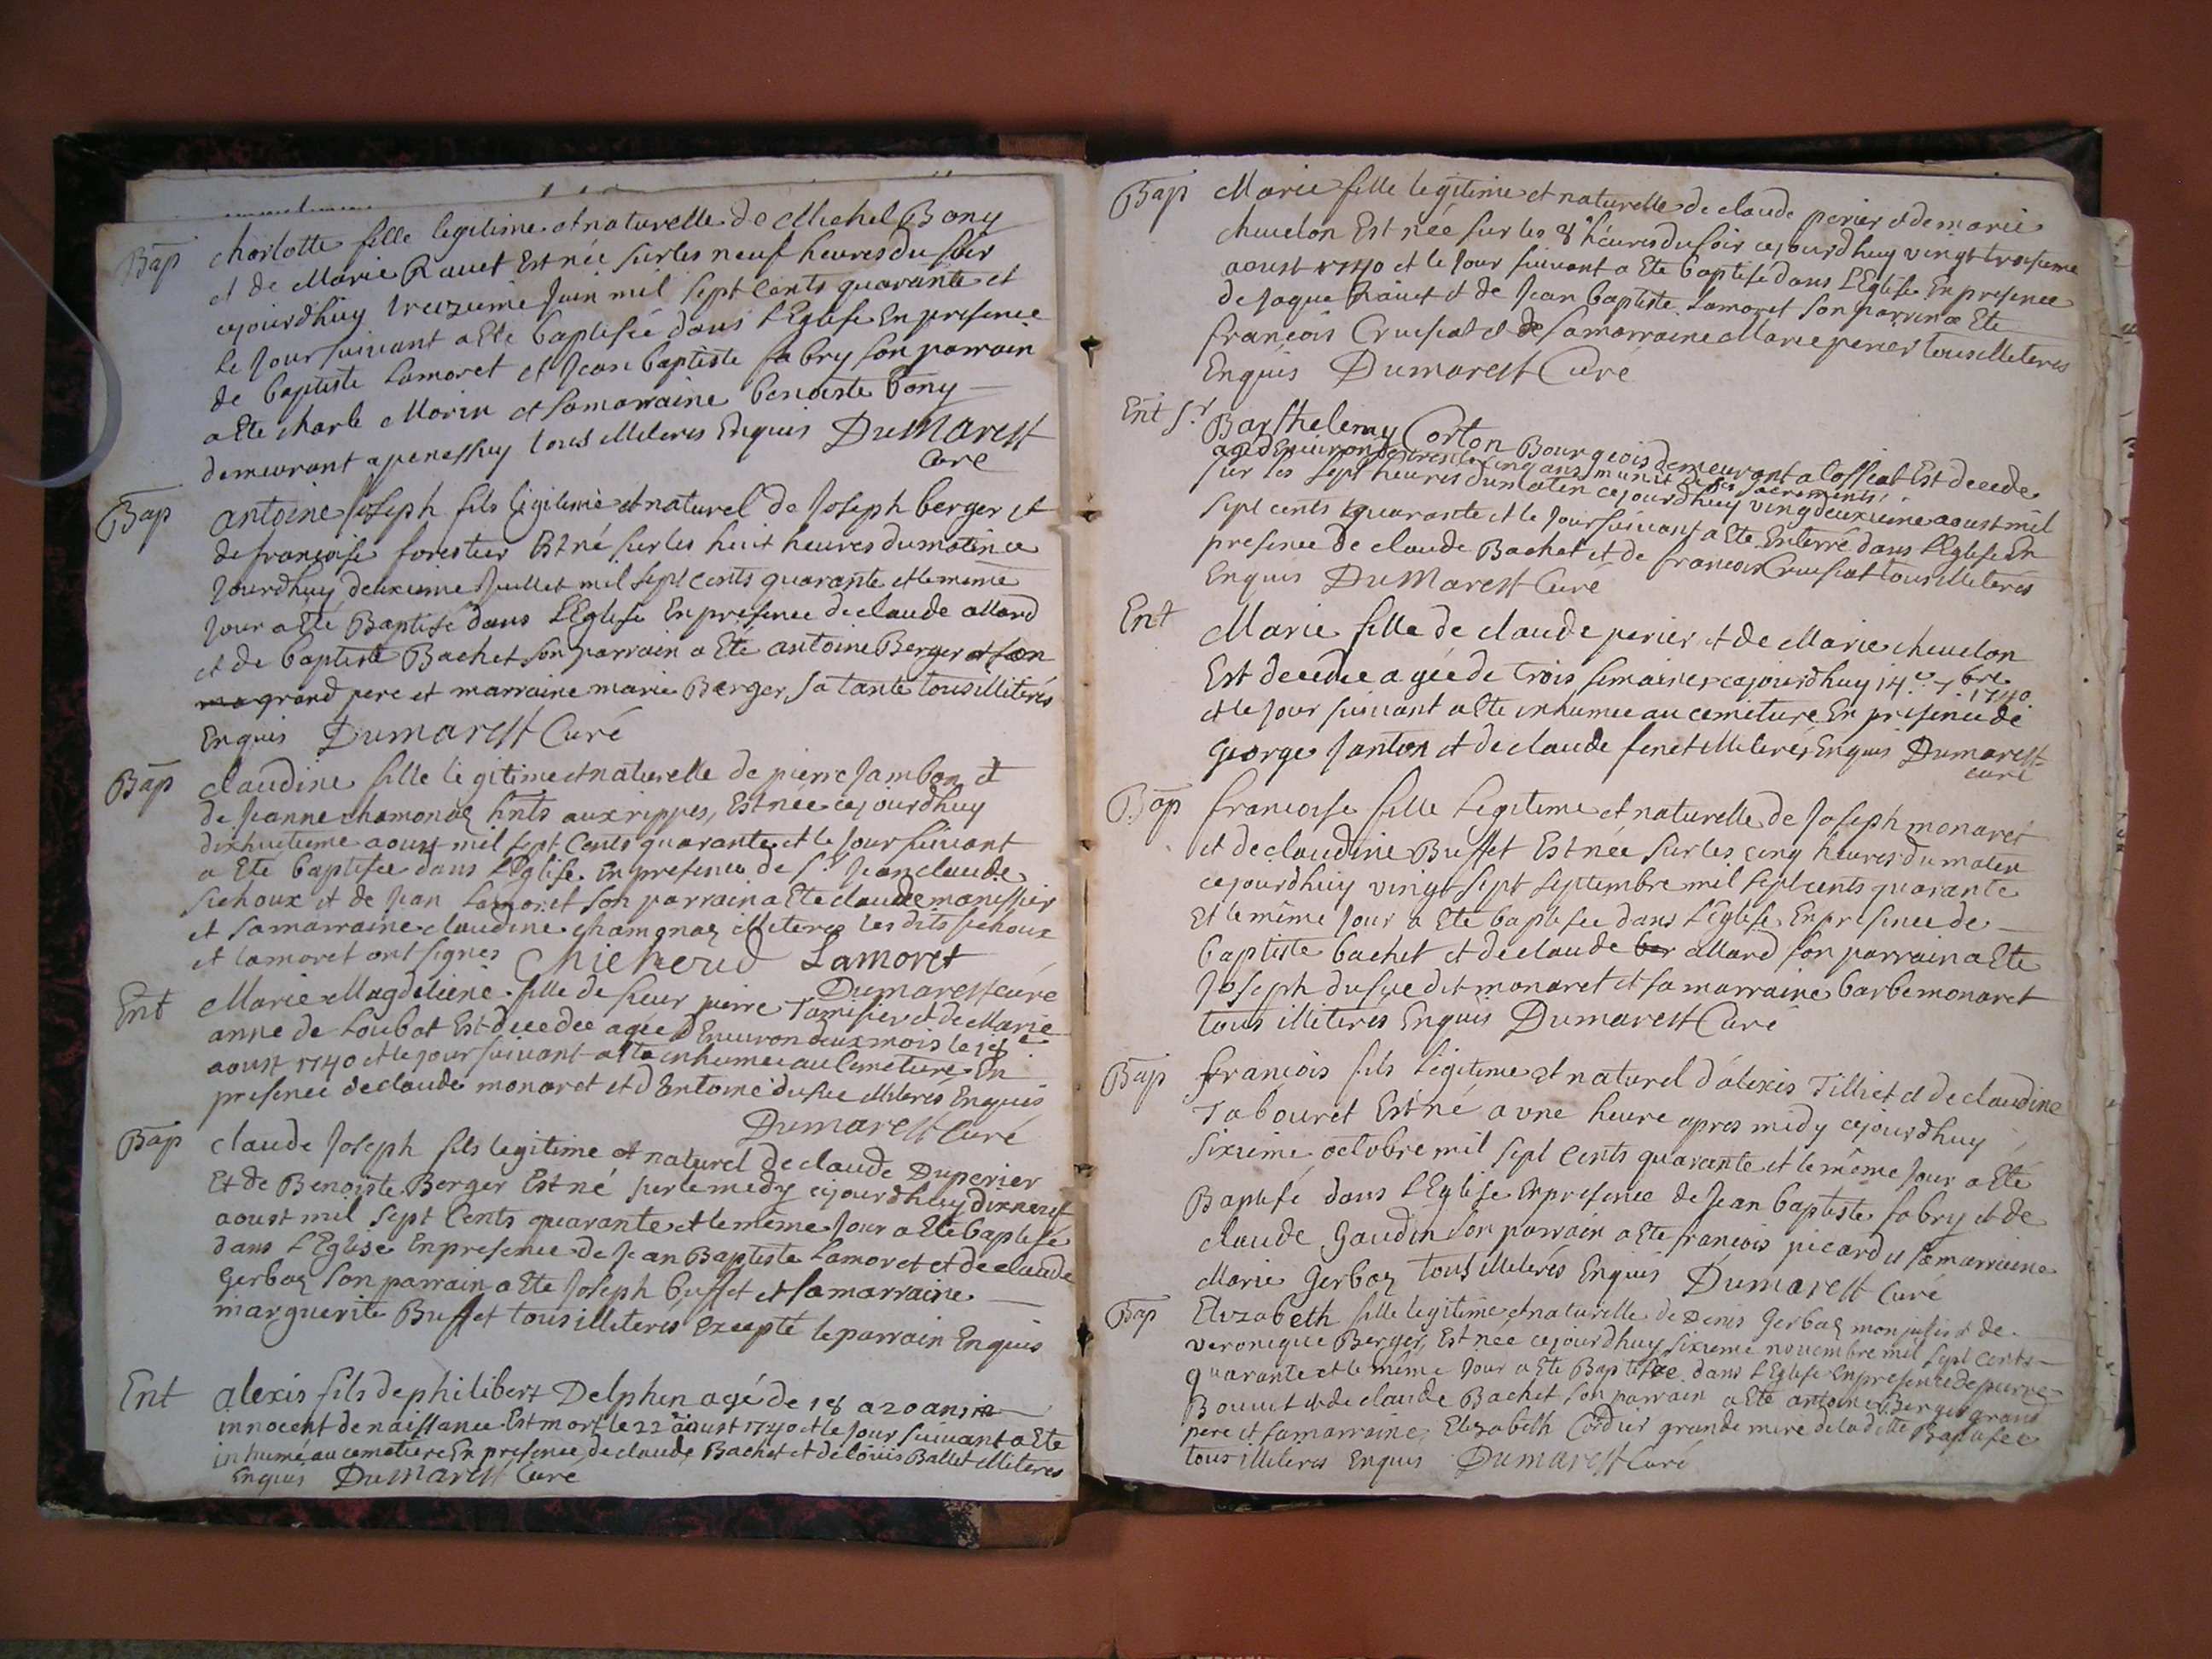 Bap charlotte fille legitime et naturelle de Michel Bony
et de Marie Ravet Est née sur les neuf heures du soir
cejourdhuy treizieme Juin mil sept Cents quarante et
le Jour suivant a Ete baptisée dans L'Eglise En presence
de baptiste Lamoret et Jean baptiste fabry son parrain
a Ete charle Morin et samarraine benoiste bony
demeurant a tous illiteres Enquis DuMarest
Curé
Bap antoine Joseph fils legitime et naturel de Joseph berger et
de francoise forestier Est né sur les huit heures dumatin ce
Jourdhuy deuxieme Juillet mil sept cents quarante et le meme
Jour a Eté Baptisé dans L'Eglise En presence de claude allard
et de baptiste Bachet son parrain a Eté antoine Berger et son
ma grand pere et marraine marie Berger sa tante tous illiterés
Enquis Dumarest Curé
Bap claudine fille legitime et naturelle de pierre Jambon et
de Jeanne chamonaz hnts aux rippes, Est née cejourdhuy
dixhuitieme aoust mil sept Cents quarante et le Jour suivant
a Ete baptisee dans L'Eglise En presence de Sr Jean claude
sichoux et de Jean Lamoret son parrain a Ete claude manissier
et samarraine claudine chamonaz illiteres les dits sichoux
et lamoret ont signes Lamoret
Dumarest curé
Ent Marie Magdeleine fille de sieur pierre Tamisier et de Marie
anne de Loubat Est decedee agée d'Environ deux mois le 18e
aoust 1740 et le jour suivant a Ete inhumee au Cimetiere En
presence de claude monaret et d'Entoine dufue illiteres Enquis
Dumarest Curé
Bap claude Joseph fils legitime et naturel de claude Duperier
Et de Benoiste Berger Est né sur le midy cejourdhuy dixneuf
aoust mil sept Cents quarante et le même Jour a Eté baptisé
dans L'Eglise En presence de Jean Baptiste Lamoret et de claude
Gerbaz son parrain a Ete Joseph buffet et samarraine
marguerite Buffet tous illiteres Excepté le parrain Enquis
Ent alexis fils de philibert Delphin agé de 18 a 20 ans in
innocent de naissance Est mort le 22 aoust 1740 et le Jour suivant a Ete
inhumé au cemetiere En presence de claude Bachet et de loüis Ballet illiteres
Enquis DuMarest Curé
Bap Marie fille legitime et naturelle de claude perier et de marie
chuelon Est née sur les 8 heures du soir cejourdhuy vingt troisieme
aoust 1740 et le Jour suivant a Ete baptisé dans L'Eglise En presence
de Jaque Ravet et de Jean baptiste Lamoret son parrin a Ete
francois Crusiat et de samarraine Marie perier tous illiteres
Enquis Dumarest Curé
Ent Sr Barthelemy Corton Bourgeois demeurant a Est decede
agé d'Environ trente cinq ans munit de ses sacrements
sur les sept heures du matin cejourdhuy vingdeuxieme aoust mil
sept cents quarante et le Jour suivant a Ete Enterré dans L'Eglise En
presence de claude Bachet et de francois Crusiat tous illiteres
Enquis DuMarest Curé
Ent Marie fille de claude perier et de Marie chuelon
Est decedee agée de trois semaines cejourdhuy 14e 7bre 1740
et le Jour suivant a Ete inhumee au cemetiere En presence de
George Janton et de claude fenet illiteres Enquis Dumarest
curé
Bap francoise fille Legitime et naturelle de Joseph monaret
et de claudine Buffet Est née sur les cinq heures du matin
cejourdhuy vingt sept septembre mil sept cents quarante
Et le même Jour a Ete baptisee dans L'Eglise En presence de
baptiste bachet et de claude ber allard son parrain a Ete
Joseph dufue dit monaret et sa marraine barbe monaret
tous illiterés Enquis Dumarest Curé
Bap francois fils Legitime et naturel d'alexis Tilliet et de claudine
Tabouret Est né a une heure apres midy cejourdhuy
sixieme octobre mil sept Cents quarante et le même Jour a Eté
Baptisé dans L'Eglise En presence de Jean baptiste fabry et de
claude Gaudin son parrain a Ete francois picard et samarraine
Marie Gerbaz tous illiterés Enquis Dumarest Curé
Bap Elizabeth fille legitime et naturelle de Denis Gerbaz et de
veronique Berger, Est née cejourdhuy sixieme novembre mil sept Cents
quarante et le même Jour a Ete Baptisee dans L'Eglise En presence de pierre
Bouvet et de claude Bachet son parrain a Ete antoine Berger grand
pere et samarraine Elizabeth Cordier grande mere de la ditte Baptisee
tous illiteres Enquis Dumarest Curé